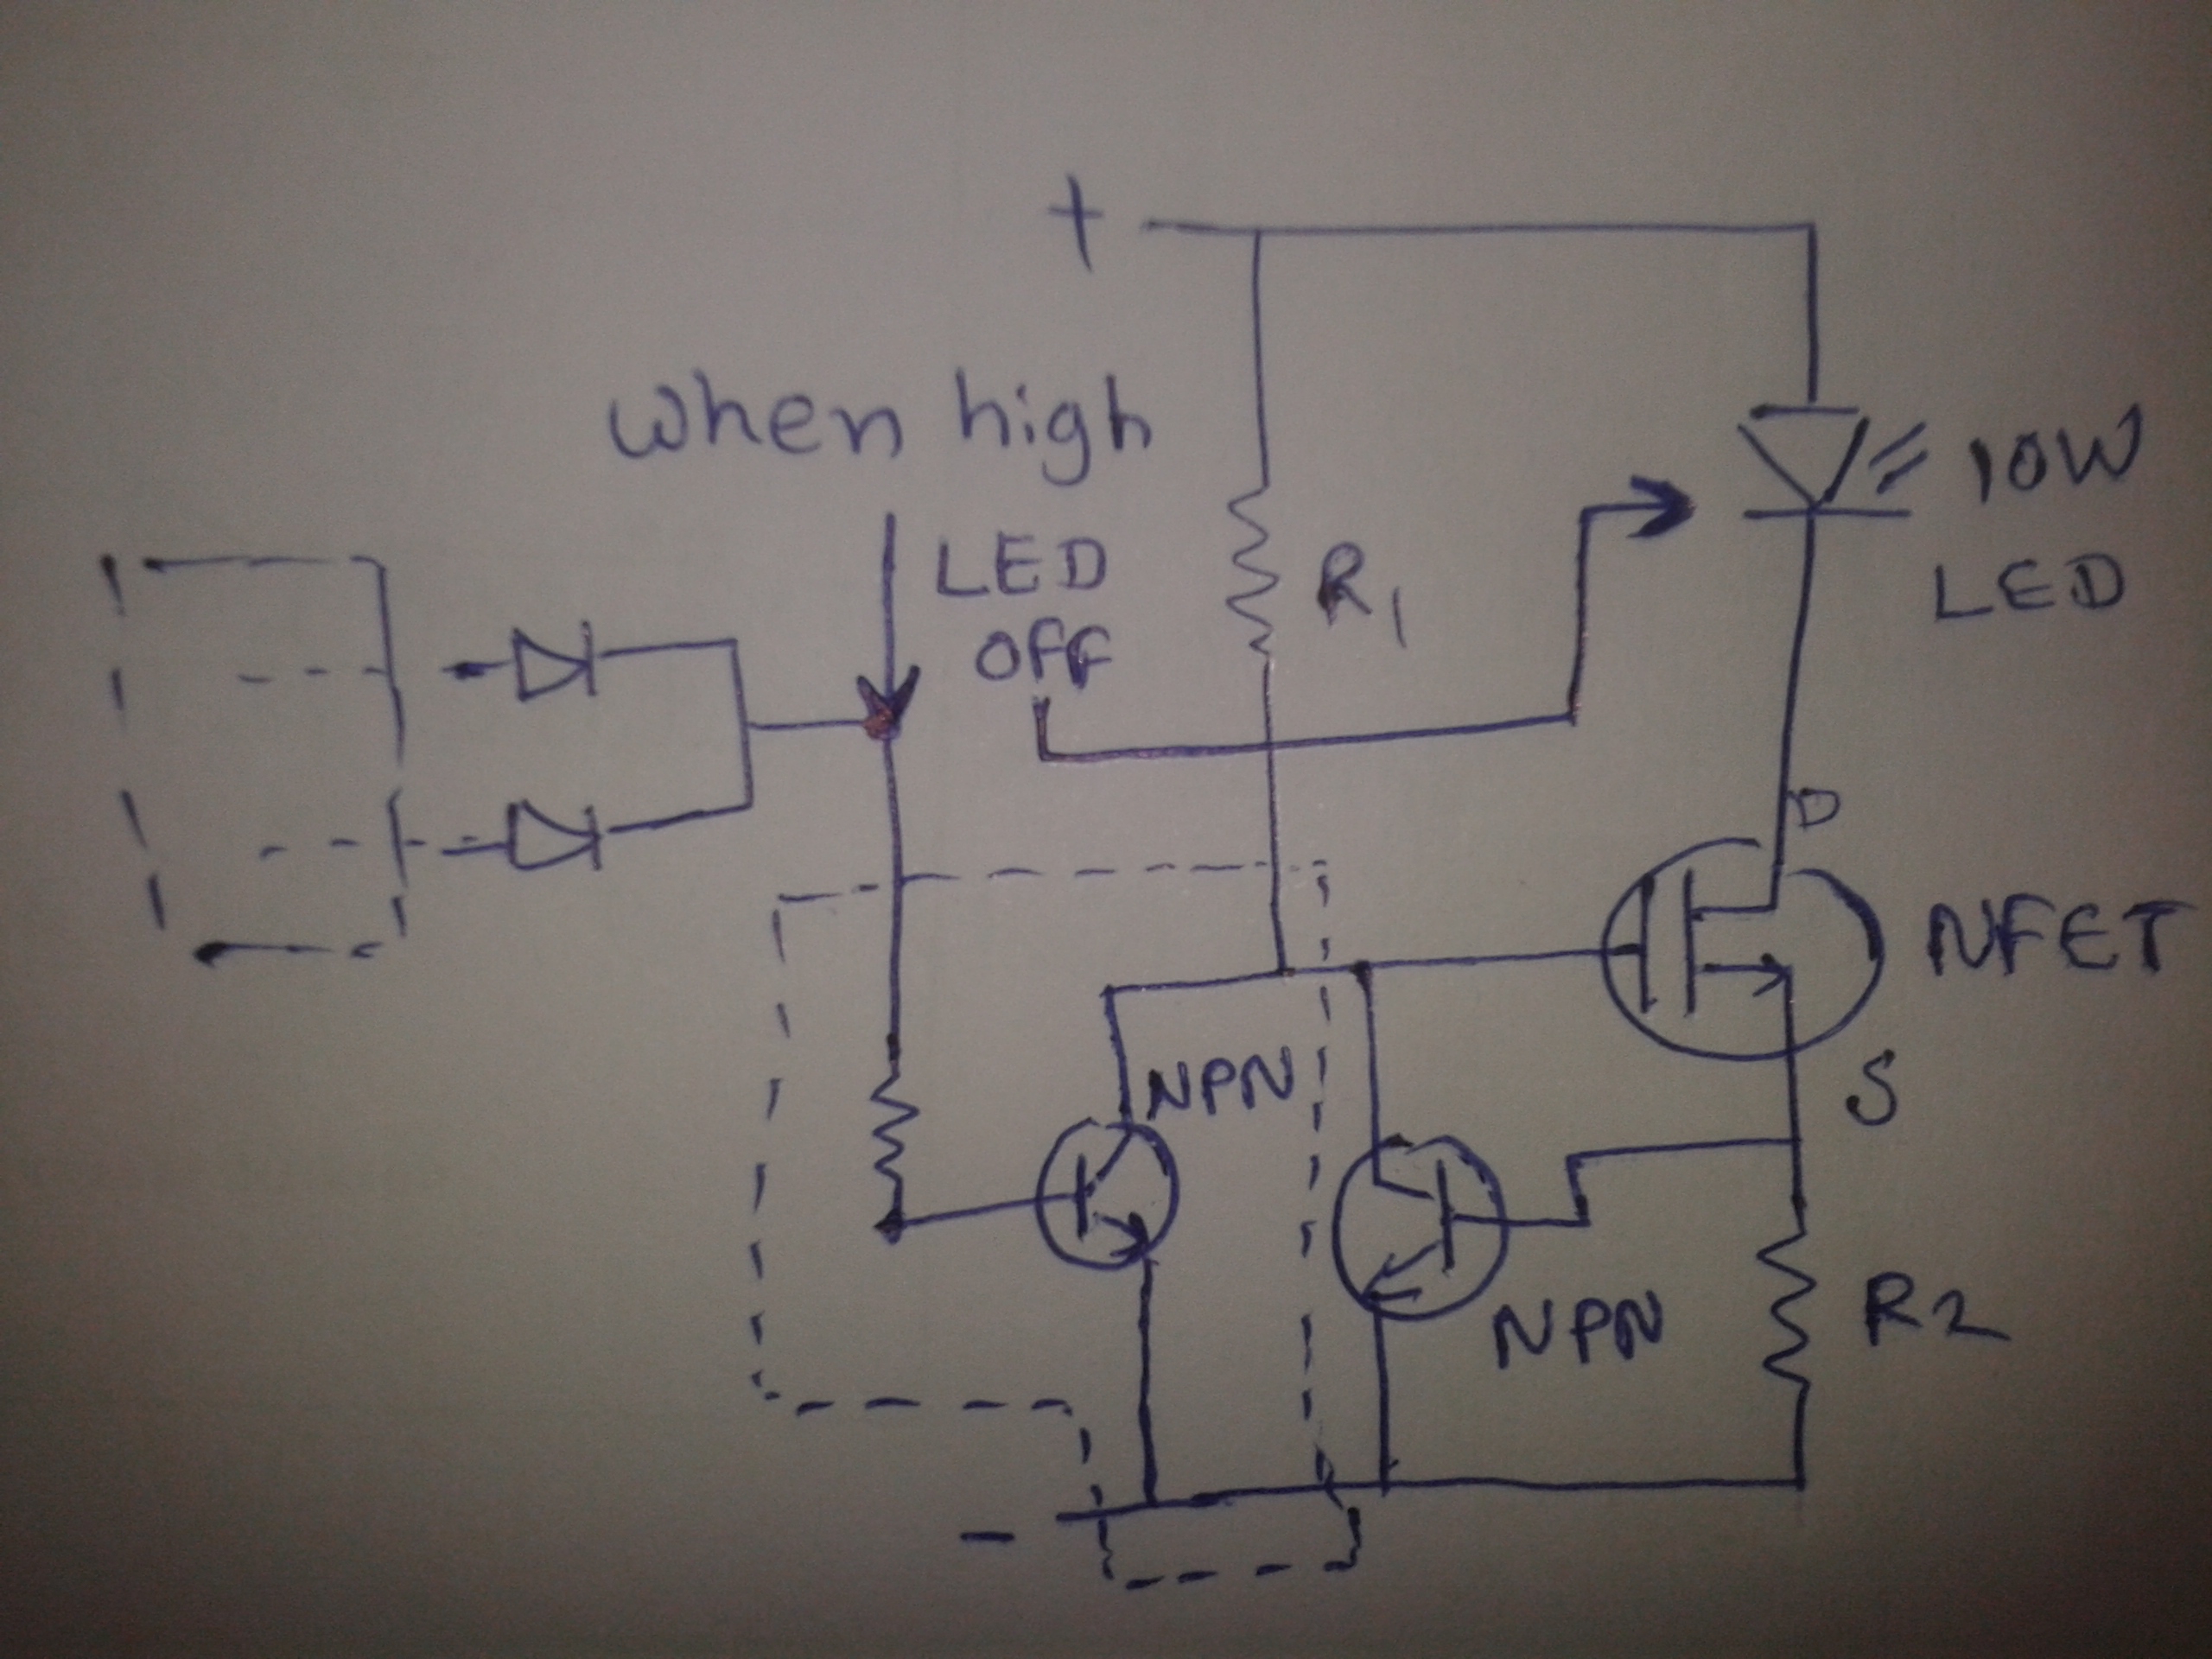 +
When high
LED
OFF
R1
10W
LED
D
NFET
S
NPN
NPN
R2
-